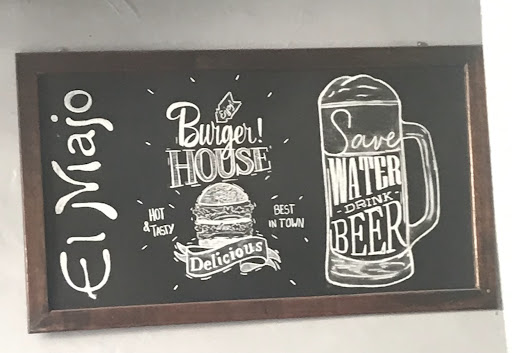 El Majo
Enjoy!
Burger!
HOUSE
HOT
& TASTY
BEST
IN TOWN
Delicious
Save
WATER
- DRINK -
BEER